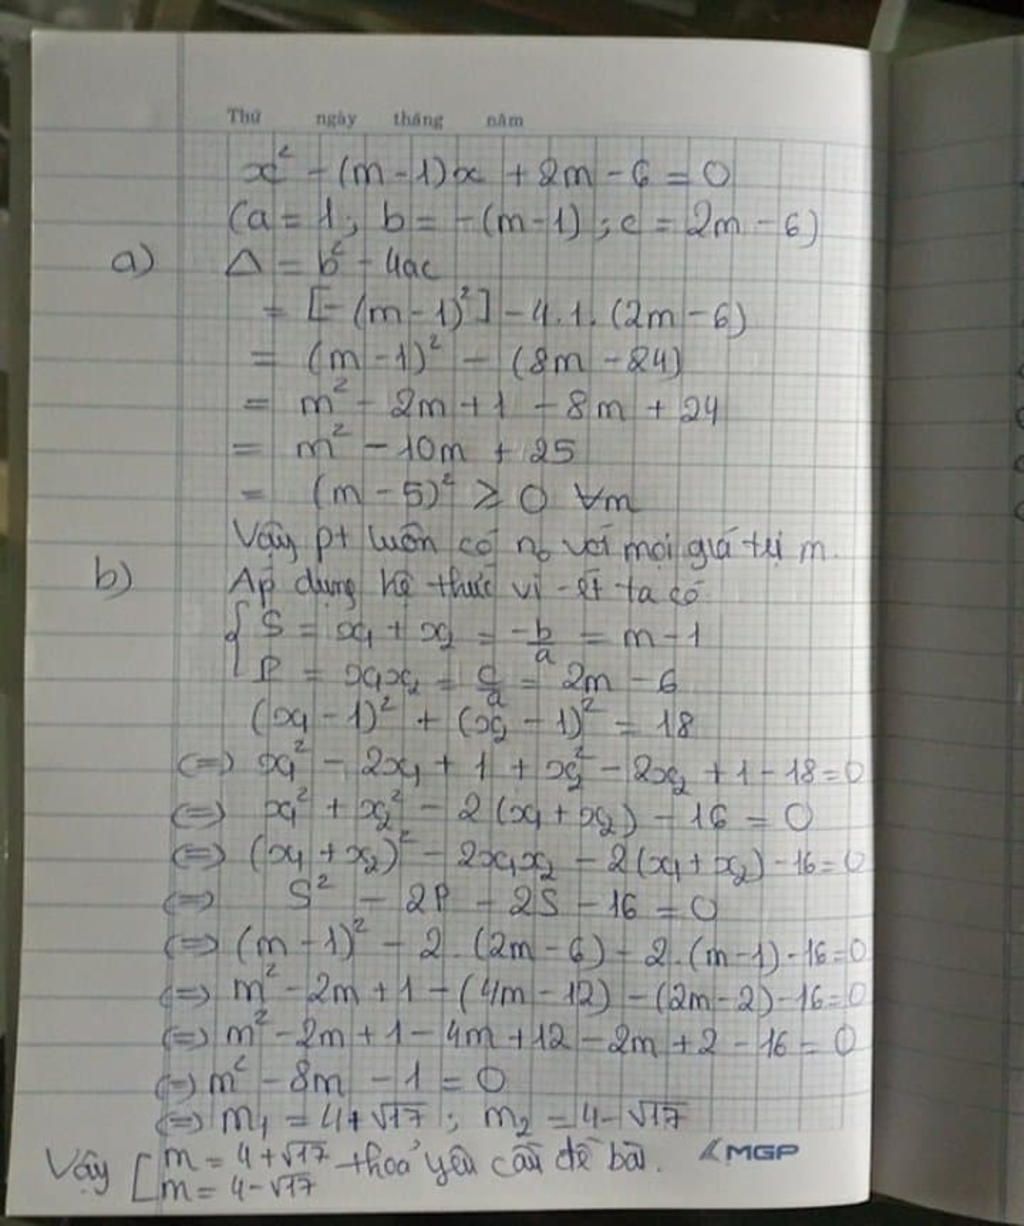 Thứ ngày tháng năm
x² - (m-1)x + 2m - 6 = 0
(a = 1; b = -(m-1); c = 2m - 6)
a) Δ = b² - 4ac
= [-(m-1)²] - 4.1.(2m-6)
= (m-1)² - (8m - 24)
= m² - 2m + 1 - 8m + 24
= m² - 10m + 25
= (m-5)² ≥ 0 ∀m
Vậy pt luôn có n₀ với mọi giá trị m.
b) Áp dụng hệ thức vi-ét ta có
{ S = x₁ + x₂ = -b/a = m - 1
P = x₁x₂ = c/a = 2m - 6
(x₁ - 1)² + (x₂ - 1)² = 18
(=) x₁² - 2x₁ + 1 + x₂² - 2x₂ + 1 - 18 = 0
(=) x₁² + x₂² - 2(x₁ + x₂) - 16 = 0
(=) (x₁ + x₂)² - 2x₁x₂ - 2(x₁ + x₂) - 16 = 0
(=) S² - 2P - 2S - 16 = 0
(=) (m-1)² - 2.(2m-6) - 2.(m-1) - 16 = 0
(=) m² - 2m + 1 - (4m - 12) - (2m - 2) - 16 = 0
(=) m² - 2m + 1 - 4m + 12 - 2m + 2 - 16 = 0
(=) m² - 8m - 1 = 0
(=) m₁ = 4+√17; m₂ = 4-√17
Vậy [ m = 4+√17 thoả yêu cầu đề bài.
m = 4-√17
MGP